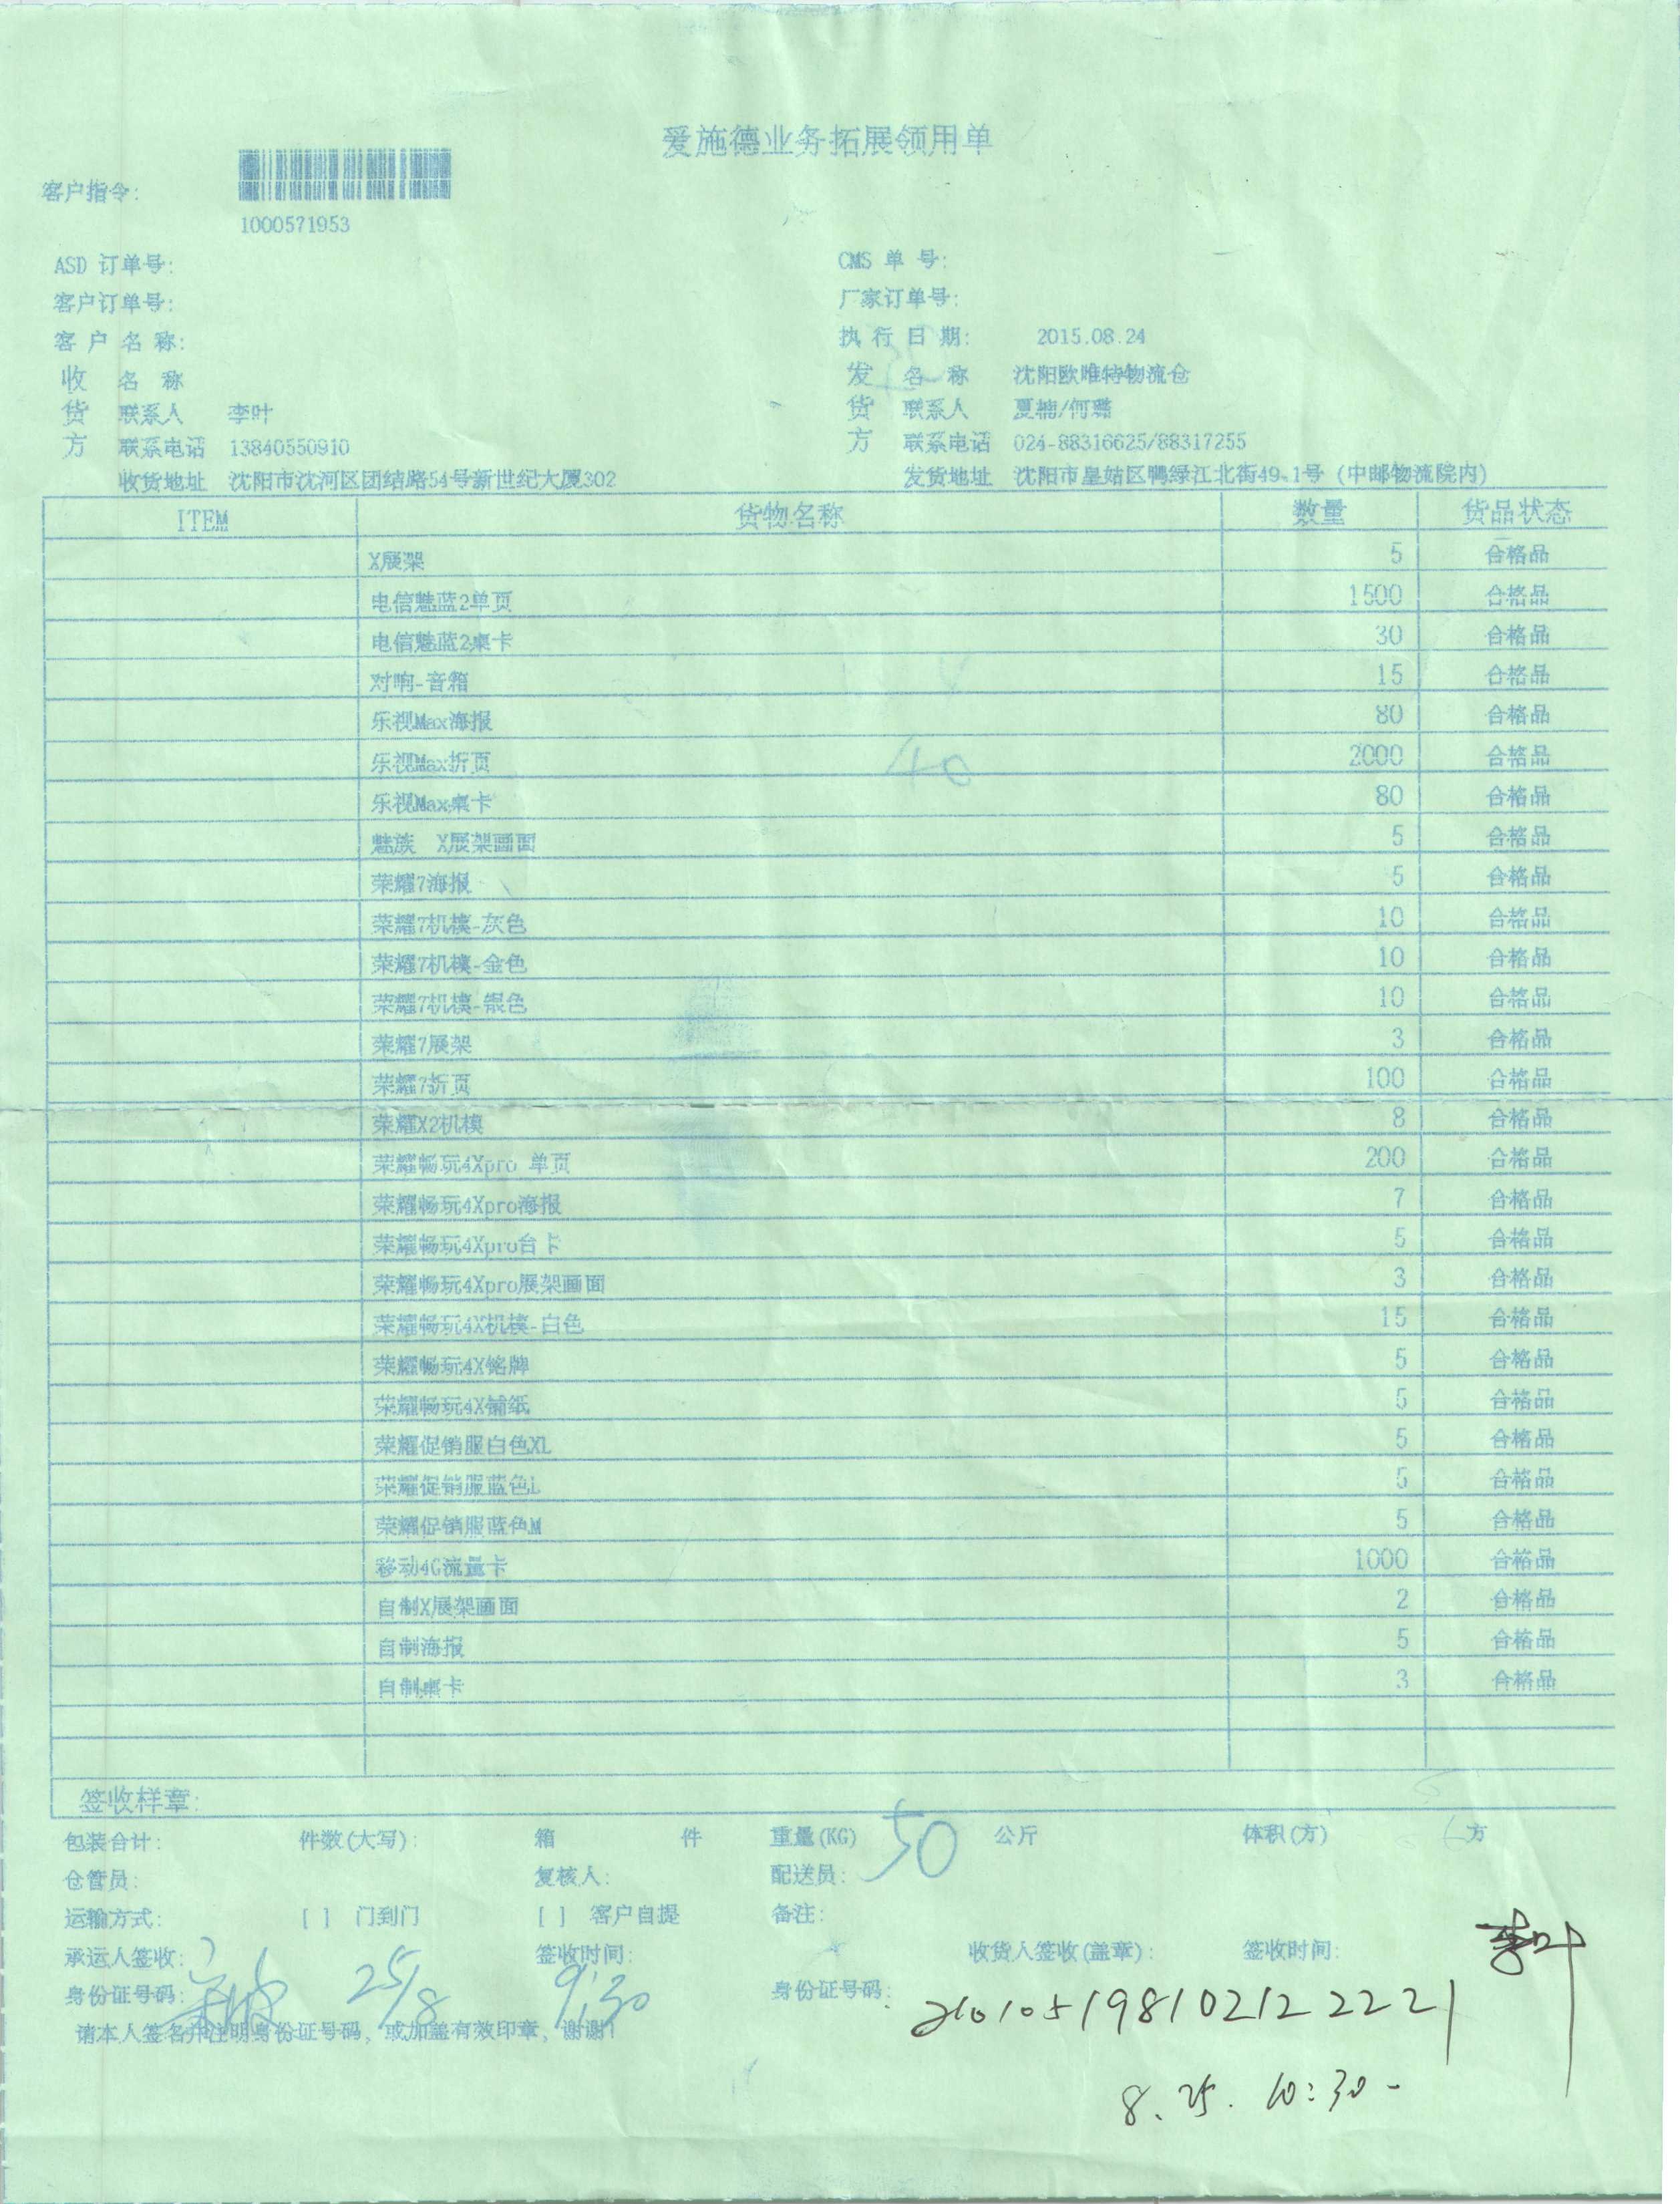 爱施德业务拓展领用单
客户指令:
1000571953
ASD 订单号: CMS 单 号:
客户订单号: 厂家订单号:
客 户 名 称: 执 行 日 期: 2015.08.24
收 名 称 发 名 称 沈阳欧唯特物流仓
货 联系人 李叶 货 联系人 夏楠/何璐
方 联系电话 13840550910 方 联系电话 024-88316625/88317255
收货地址 沈阳市沈河区团结路54号新世纪大厦302 发货地址 沈阳市皇姑区鸭绿江北街49-1号 (中邮物流院内)
ITEM 货物名称 数量 货品状态
X展架 5 合格品
电信魅蓝2单页 1500 合格品
电信魅蓝2桌卡 30 合格品
对响-音箱 15 合格品
乐视Max海报 80 合格品
乐视Max折页 40 2000 合格品
乐视Max桌卡 80 合格品
魅族 X展架画面 5 合格品
荣耀7海报 5 合格品
荣耀7机模-灰色 10 合格品
荣耀7机模-金色 10 合格品
荣耀7机模-银色 10 合格品
荣耀7展架 3 合格品
荣耀7折页 100 合格品
荣耀X2机模 8 合格品
荣耀畅玩4Xpro 单页 200 合格品
荣耀畅玩4Xpro海报 7 合格品
荣耀畅玩4Xpro台卡 5 合格品
荣耀畅玩4Xpro展架画面 3 合格品
荣耀畅玩4X机模-白色 15 合格品
荣耀畅玩4X铭牌 5 合格品
荣耀畅玩4X铺纸 5 合格品
荣耀促销服白色XL 5 合格品
荣耀促销服蓝色L 5 合格品
荣耀促销服蓝色M 5 合格品
移动4G流量卡 1000 合格品
自制X展架画面 2 合格品
自制海报 5 合格品
自制桌卡 3 合格品
签收样章:
包装合计: 件数(大写): 箱 件 重量(KG) 50 公斤 体积(方) 方
仓管员: 复核人: 配送员:
运输方式: [ ] 门到门 [ ] 客户自提 备注:
承运人签收: 签收时间: 收货人签收(盖章): 签收时间: 李叶
身份证号码: 25/8 9:30 身份证号码: 210105198102122221
请本人签名并注明身份证号码，或加盖有效印章，谢谢!
8.25. 10:30-